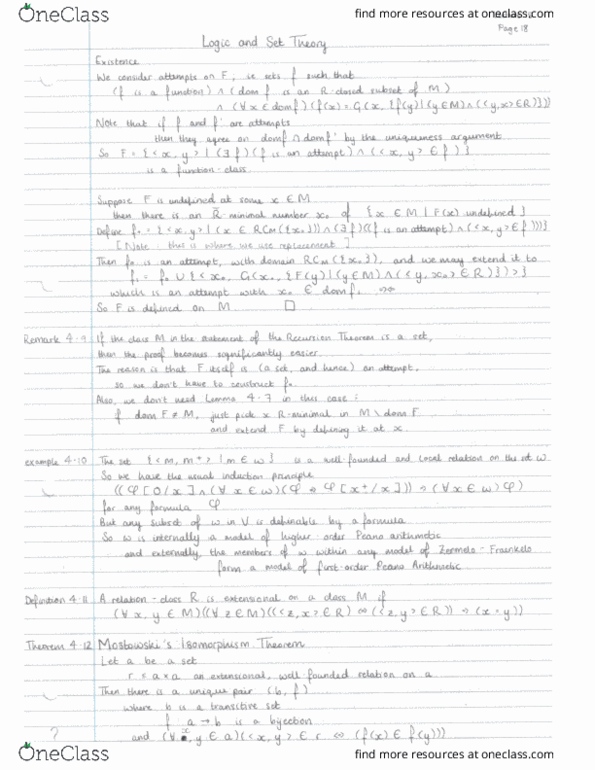 OneClass
find more resources at oneclass.com
Page 18
Logic and Set Theory
Existence
We consider attempts on F, ie sets f such that
(f is a function) ∧ (dom f is an R-closed subset of M)
∧ (∀ x ∈ dom f)(f(x) = G(x, {f(y) | (y ∈ M) ∧ (<y, x> ∈ R)}))
Note that if f and f' are attempts
then they agree on dom f ∩ dom f' by the uniqueness argument
So F = {<x, y> | (∃ f)(f is an attempt) ∧ (<x, y> ∈ f)}
is a function-class.
Suppose F is undefined at some x ∈ M
then there is an R̄-minimal number x₀ of {x ∈ M | F(x) undefined}
Define f₀ = {<x, y> | (x ∈ RC_M({x₀})) ∧ (∃ f)((f is an attempt) ∧ (<x, y> ∈ f))}
[Note: this is where we use replacement]
Then f₀ is an attempt, with domain RC_M({x₀}), and we may extend it to
f₁ = f₀ ∪ {<x₀, G(x₀, {F(y) | (y ∈ M) ∧ (<y, x₀> ∈ R)})>}
which is an attempt with x₀ ∈ dom f₁
So F is defined on M. □
Remark 4.9 If the class M in the statement of the Recursion Theorem is a set,
then the proof becomes significantly easier.
The reason is that F itself is (a set, and hence) an attempt,
so we don't have to construct f₀
Also, we don't need Lemma 4.7 in this case:
if dom F ≠ M, just pick x R-minimal in M \ dom F
and extend F by defining it at x.
example 4.10 The set {<m, m⁺> | m ∈ ω} is a well-founded and local relation on the set ω.
So we have the usual induction principle
((φ[0/x] ∧ (∀ x ∈ ω)(φ ⇒ φ[x⁺/x])) ⇒ (∀ x ∈ ω) φ)
for any formula φ
But any subset of ω in V is definable by a formula
So ω is internally a model of higher-order Peano arithmetic
and externally, the members of ω within any model of Zermelo-Fraenkel
form a model of first-order Peano Arithmetic.
Definition 4.11 A relation-class R is extensional on a class M if
(∀ x, y ∈ M)((∀ z ∈ M)((<z, x> ∈ R) ⇔ (<z, y> ∈ R)) ⇒ (x = y))
Theorem 4.12 Mostowski's Isomorphism Theorem
Let a be a set
r ⊆ a × a an extensional, well-founded relation on a
Then there is a unique pair (b, f)
where b is a transitive set
f: a → b is a bijection
and (∀ x, y ∈ a)(<x, y> ∈ r ⇔ (f(x) ∈ f(y)))
?
OneClass
find more resources at oneclass.com